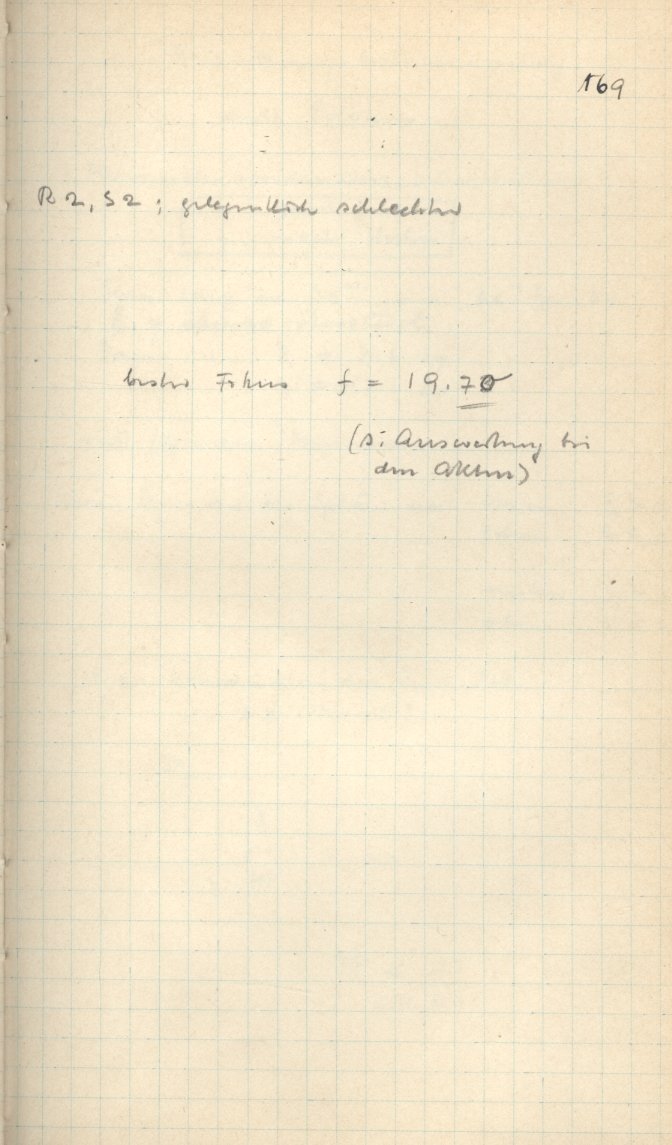 169
R 2, S 2 ; gelegentlich schlechter
bester Fokus f = 19.70
(s. Auswertung bei
den Akten)